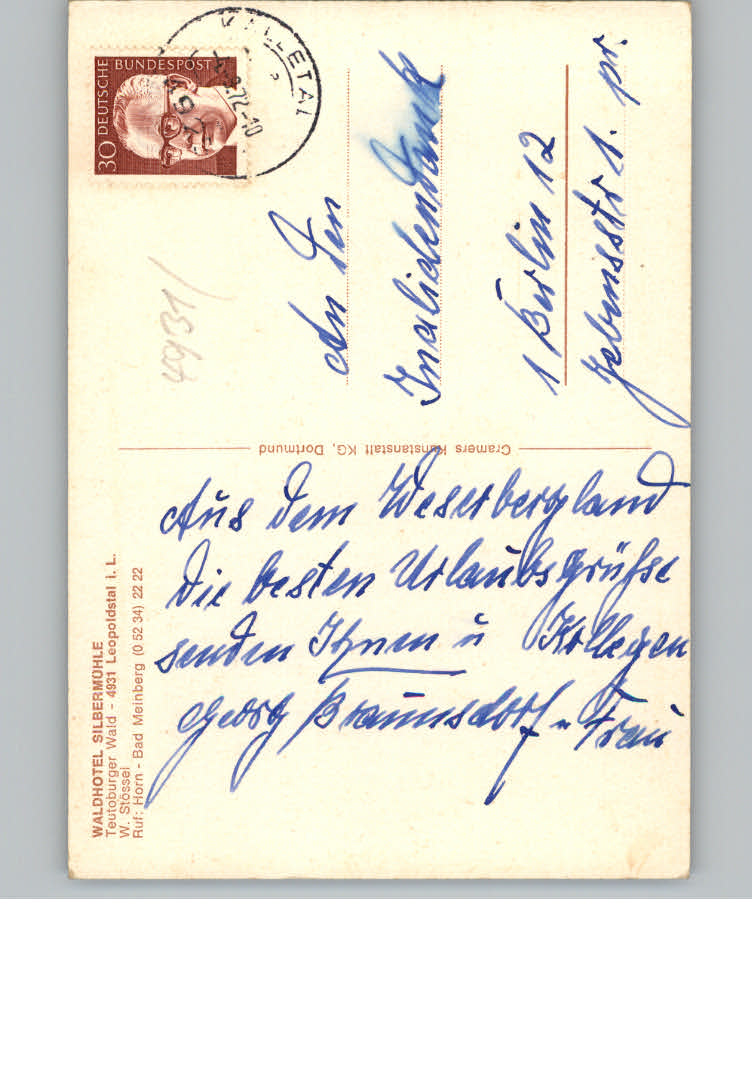 WALDHOTEL SILBERMÜHLE
Teutoburger Wald - 4931 Leopoldstal i. L.
W. Stössel
Ruf: Horn - Bad Meinberg (0 52 34) 22 22
Aus dem Weserbergland
die besten Urlaubsgrüße
senden Ihnen u Kollegen
Georg Braunsdorf u Frau
Cramers Kunstanstalt KG, Dortmund
DEUTSCHE BUNDESPOST
30
KALLETAL
72-10
4931/
An den
Invalidendank
1 Berlin 12
Jebensstr 1. pr.